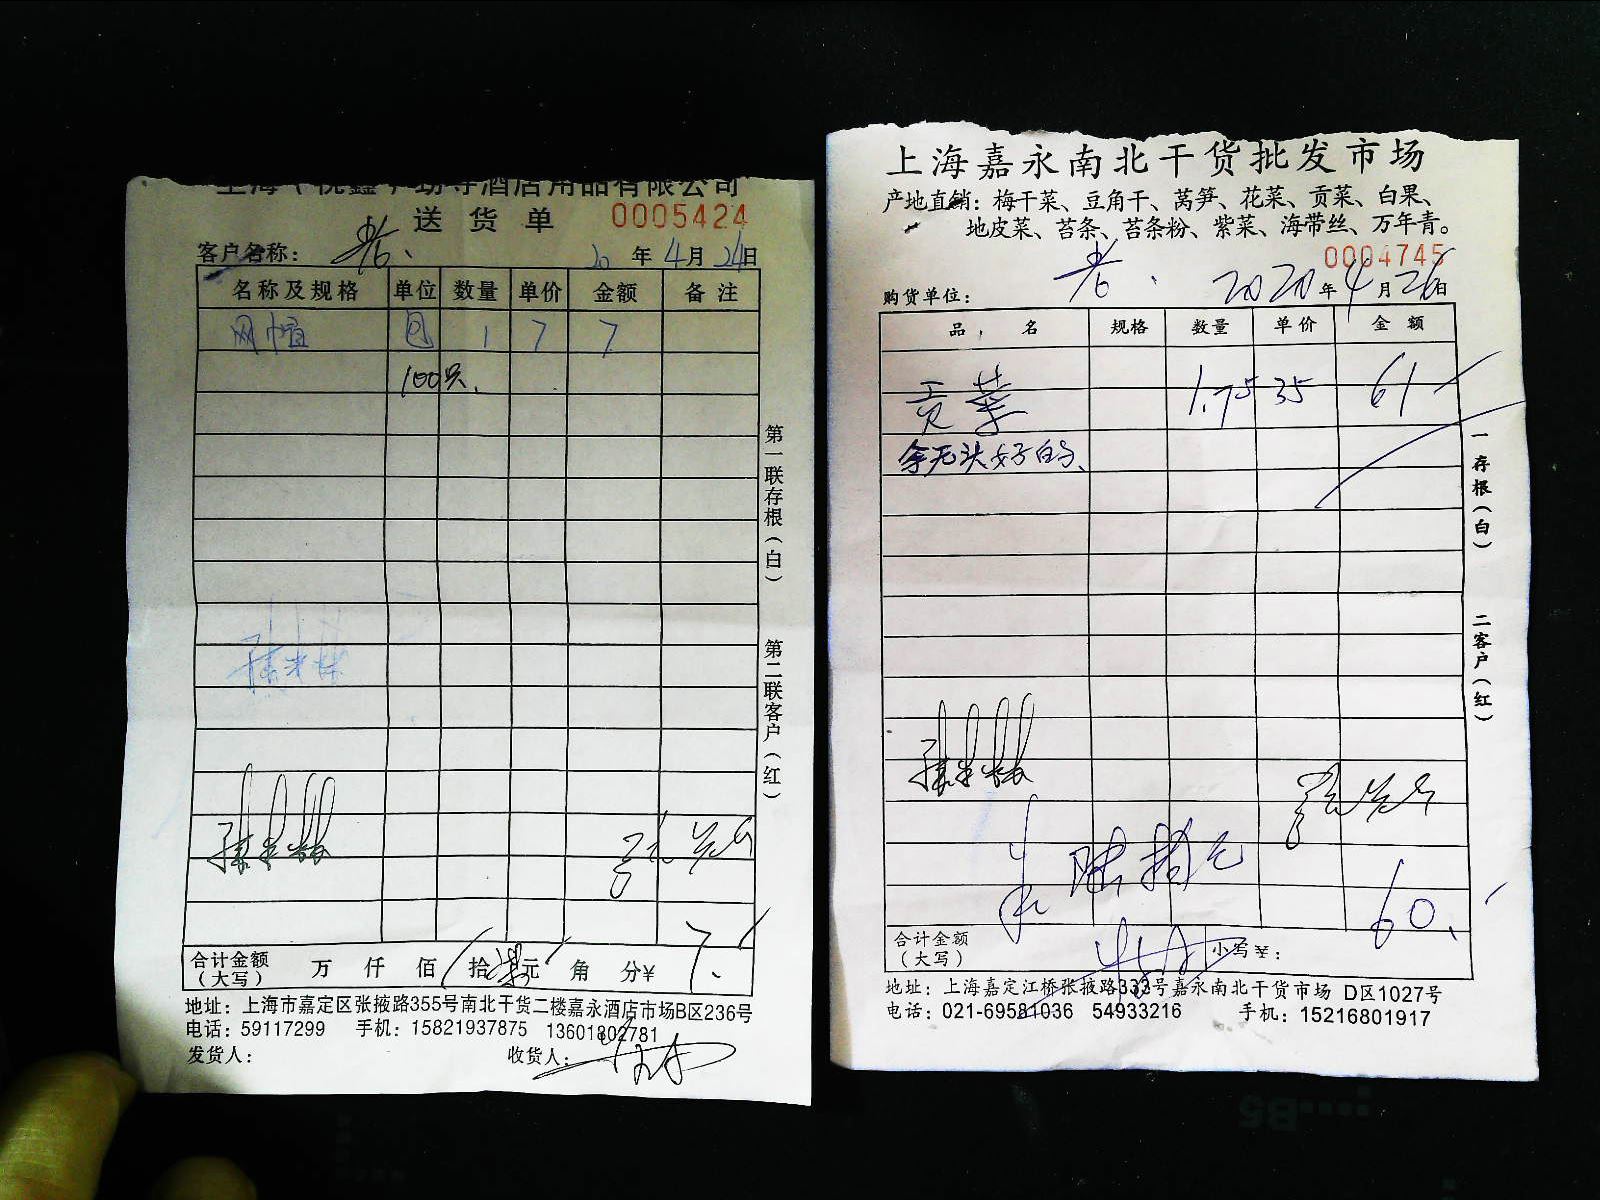 酒店用品有限公司
送货单 0005424
客户名称： 老、 20年4月24日
名称及规格 单位 数量 单价 金额 备注
网帽 包 1 7 7
100只、
第一联存根（白）
第二联客户（红）
合计金额（大写） 万 仟 佰 拾 柒 元 角 分￥ 7.
地址：上海市嘉定区张掖路355号南北干货二楼嘉永酒店市场B区236号
电话：59117299 手机：15821937875 13601802781
发货人： 收货人：
上海嘉永南北干货批发市场
产地直销：梅干菜、豆角干、莴笋、花菜、贡菜、白果、
地皮菜、苔条、苔条粉、紫菜、海带丝、万年青。
0004745
购货单位： 老. 2020年4月26日
品名 规格 数量 单价 金额
贡菜 1.75 35 61
拿无头好的、
一存根（白）
二客户（红）
陆拾元
60.
合计金额（大写） 小写￥：
地址：上海嘉定江桥张掖路333号嘉永南北干货市场 D区1027号
电话：021-69581036 54933216 手机：15216801917